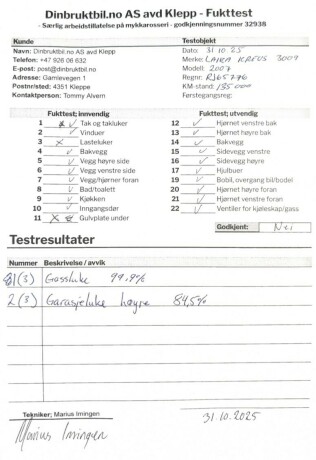 Dinbruktbil.no AS avd Klepp - Fukttest
- Særlig arbeidstillatelse på mykkarosseri - godkjenningsnummer 32938
Kunde
Navn: Dinbruktbil.no AS avd Klepp
Telefon: +47 928 06 632
E-post: post@dinbruktbil.no
Adresse: Gamleveien 1
Postnr/sted: 4351 Kleppe
Kontaktperson: Tommy Alvern
Testobjekt
Dato: 31.10.25
Merke: LAIKA KREOS 3009
Modell: 2007
Regnr: RJ65776
KM-stand: 135000
Førstegangsreg:
Fukttest; innvendig
1 Tak og takluker
2 Vinduer
3 x Lasteluker
4 ✓ Bakvegg
5 ✓ Vegg høyre side
6 ✓ Vegg venstre side
7 ✓ Vegg/hjørner foran
8 ✓ Bad/toalett
9 ✓ Kjøkken
10 ✓ Inngangsdør
11 x Gulvplate under
Fukttest; utvendig
12 ✓ Hjørnet venstre bak
13 ✓ Hjørnet høyre bak
14 ✓ Bakvegg
15 ✓ Sidevegg venstre
16 ✓ Sidevegg høyre
17 ✓ Hjulbuer
19 ✓ Bobil, overgang bil/bodel
20 ✓ Hjørnet høyre foran
21 ✓ Hjørnet venstre foran
22 ✓ Ventiler for kjøleskap/gass
Godkjent: Nei
Testresultater
Nummer Beskrivelse / avvik
1(3) Gassluke 99,9%
2(3) Garasjeluke høyre 84,5%
Tekniker; Marius Imingen
31.10.2025
Marius Imingen